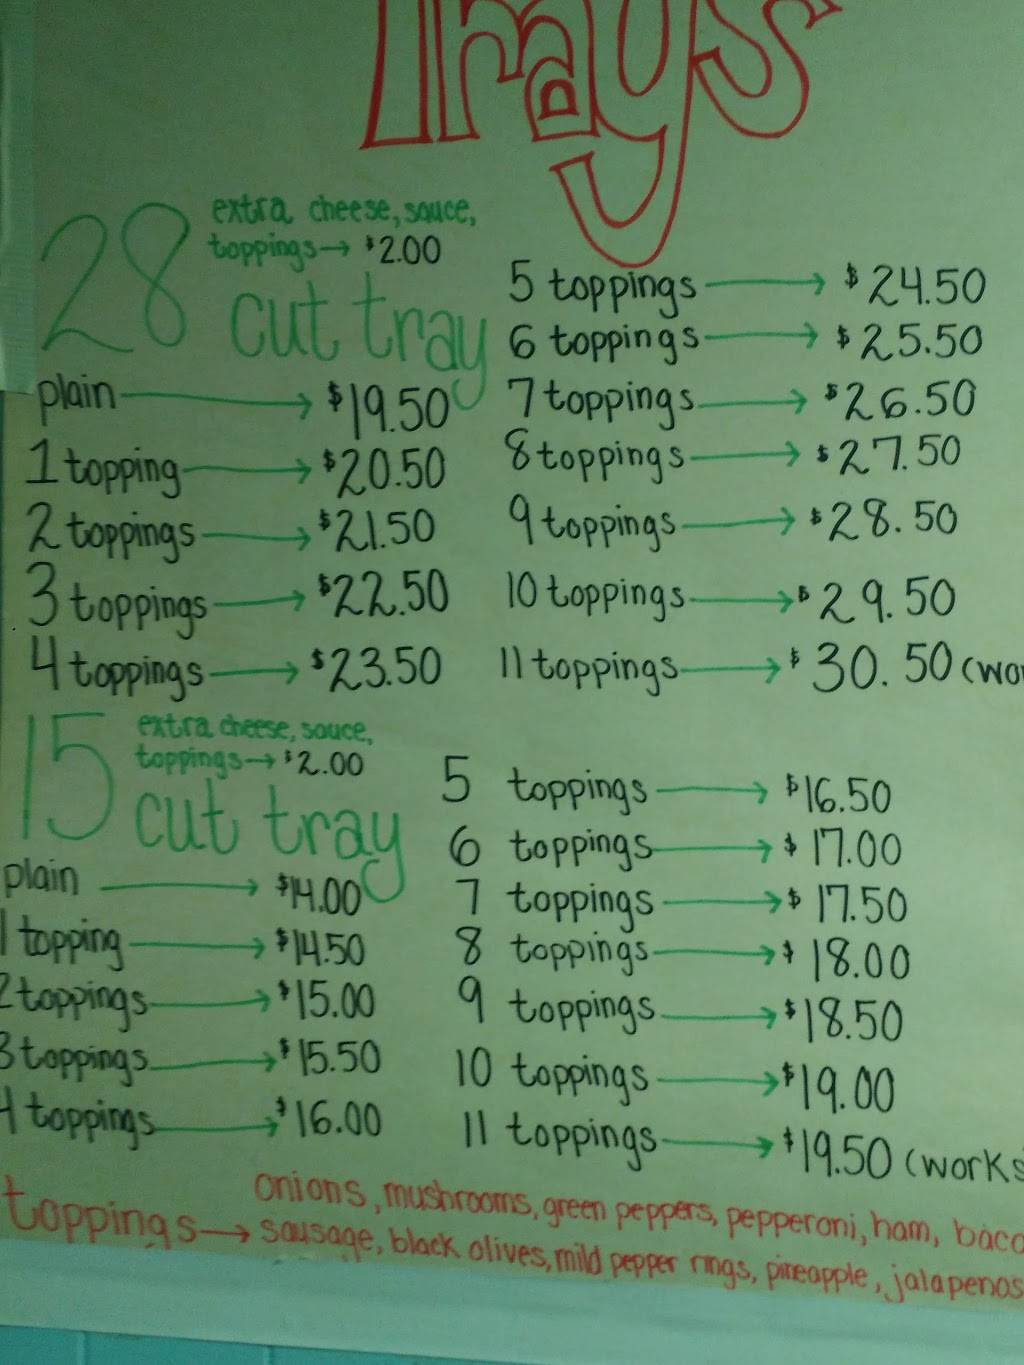 Trays
28 cut tray
extra cheese, sauce,
toppings→ $2.00
plain → $19.50
1 topping → $20.50
2 toppings → $21.50
3 toppings → $22.50
4 toppings → $23.50
5 toppings → $24.50
6 toppings → $25.50
7 toppings → $26.50
8 toppings → $27.50
9 toppings → $28.50
10 toppings → $29.50
11 toppings → $30.50
15 cut tray
extra cheese, sauce,
toppings→ $2.00
plain → $14.00
1 topping → $14.50
2 toppings → $15.00
3 toppings → $15.50
4 toppings → $16.00
5 toppings → $16.50
6 toppings → $17.00
7 toppings → $17.50
8 toppings → $18.00
9 toppings → $18.50
10 toppings → $19.00
11 toppings → $19.50 (works
toppings → onions, mushrooms, green peppers, pepperoni, ham,
sausage, black olives, mild pepper rings, pineapple, jalapenos